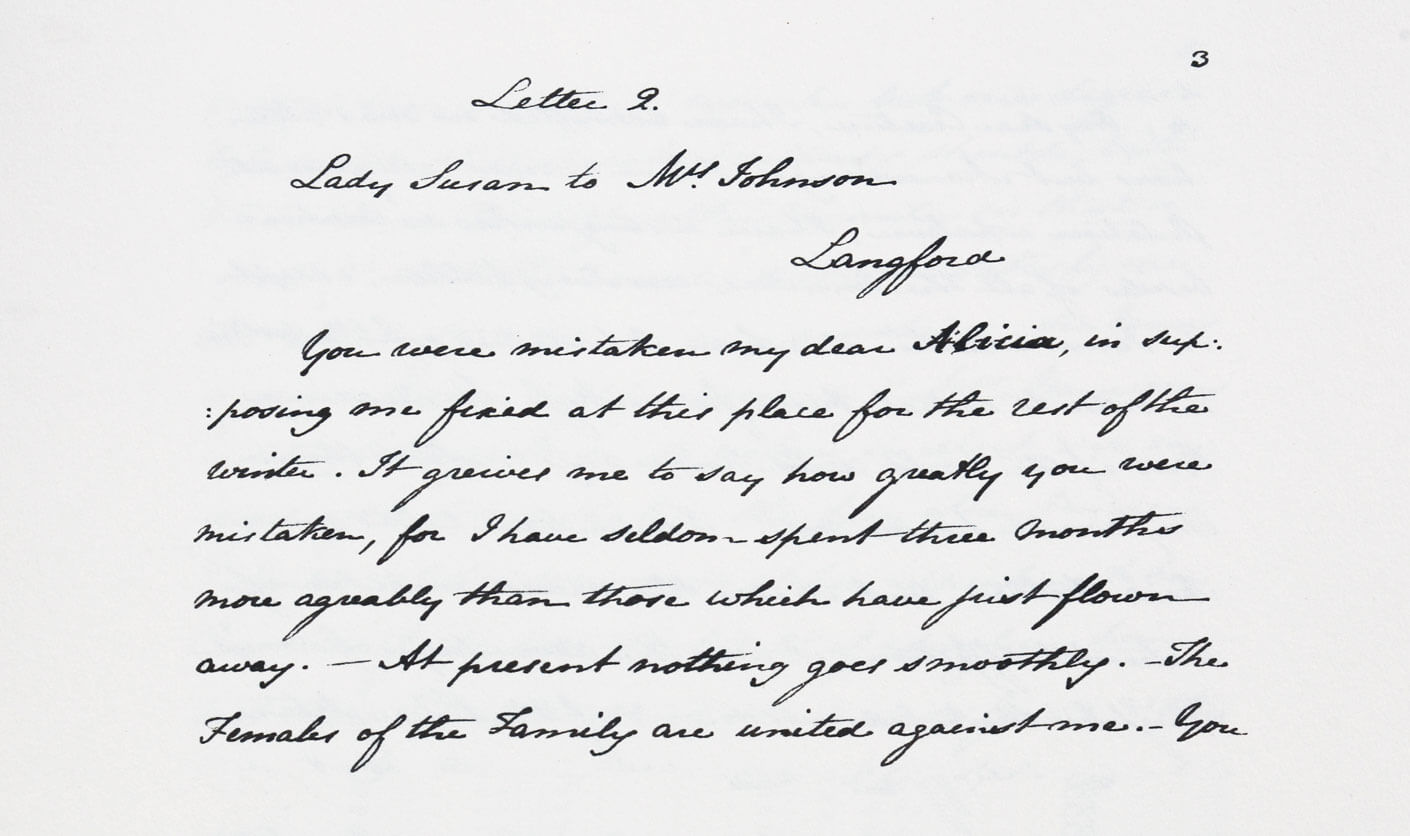 3
Letter 2.
Lady Susan to Mrs Johnson
Langford
You were mistaken my dear Alicia, in sup:
:posing me fixed at this place for the rest of the
winter. It greives me to say how greatly you were
mistaken, for I have seldom spent three months
more agreably than those which have just flown
away. — At present nothing goes smoothly. — The
Females of the Family are united against me. — You